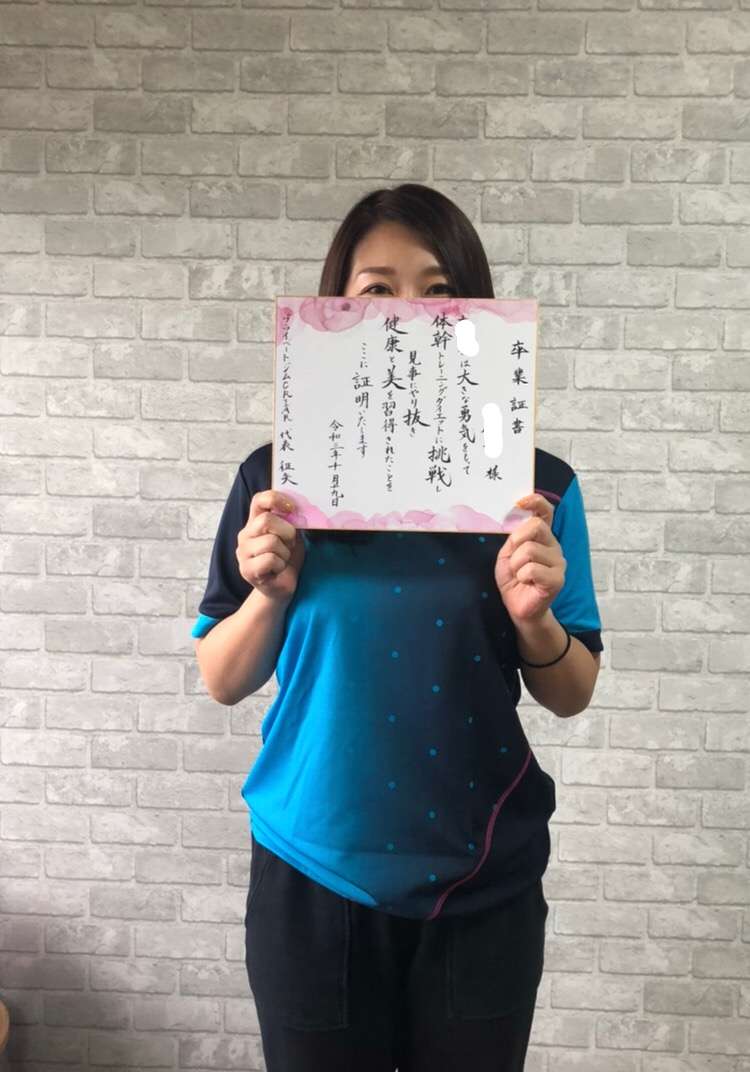 卒業証書
様
は大きな勇気をもって
体幹トレーニングダイエットに挑戦し
見事にやり抜き
健康と美を習得されたことを
ここに証明いたします
令和三年十月十九日
代表 征矢